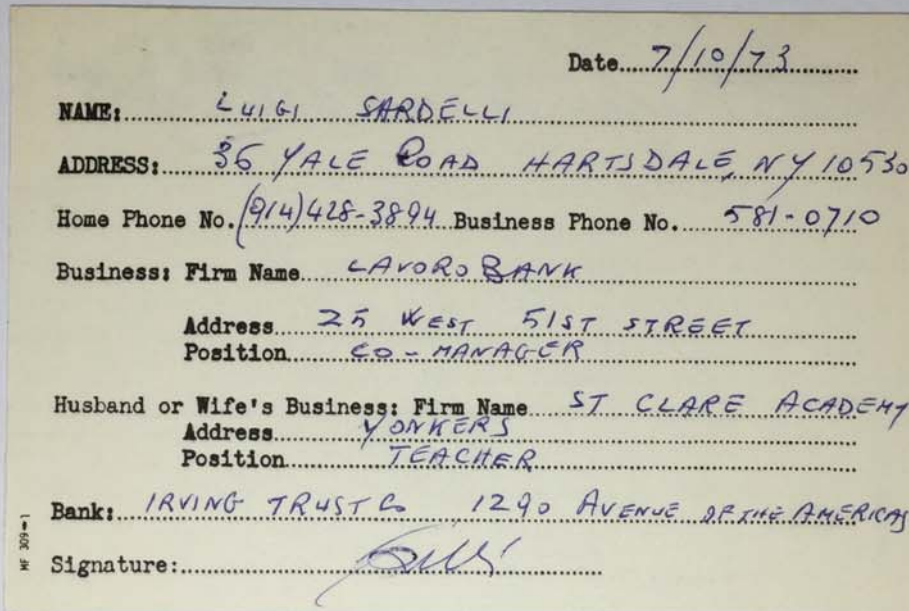 Date 7/10/73
NAME: LUIGI SARDELLI
ADDRESS: 36 YALE ROAD HARTSDALE, NY 10530
Home Phone No. (914) 428-3894 Business Phone No. 581-0710
Business: Firm Name LAVORO BANK
Address 25 WEST 51ST STREET
Position CO-MANAGER
Husband or Wife's Business: Firm Name ST CLARE ACADEMY
Address YONKERS
Position TEACHER
Bank: IRVING TRUST Co 1290 AVENUE OF THE AMERICAS
Signature:
MF 309-1